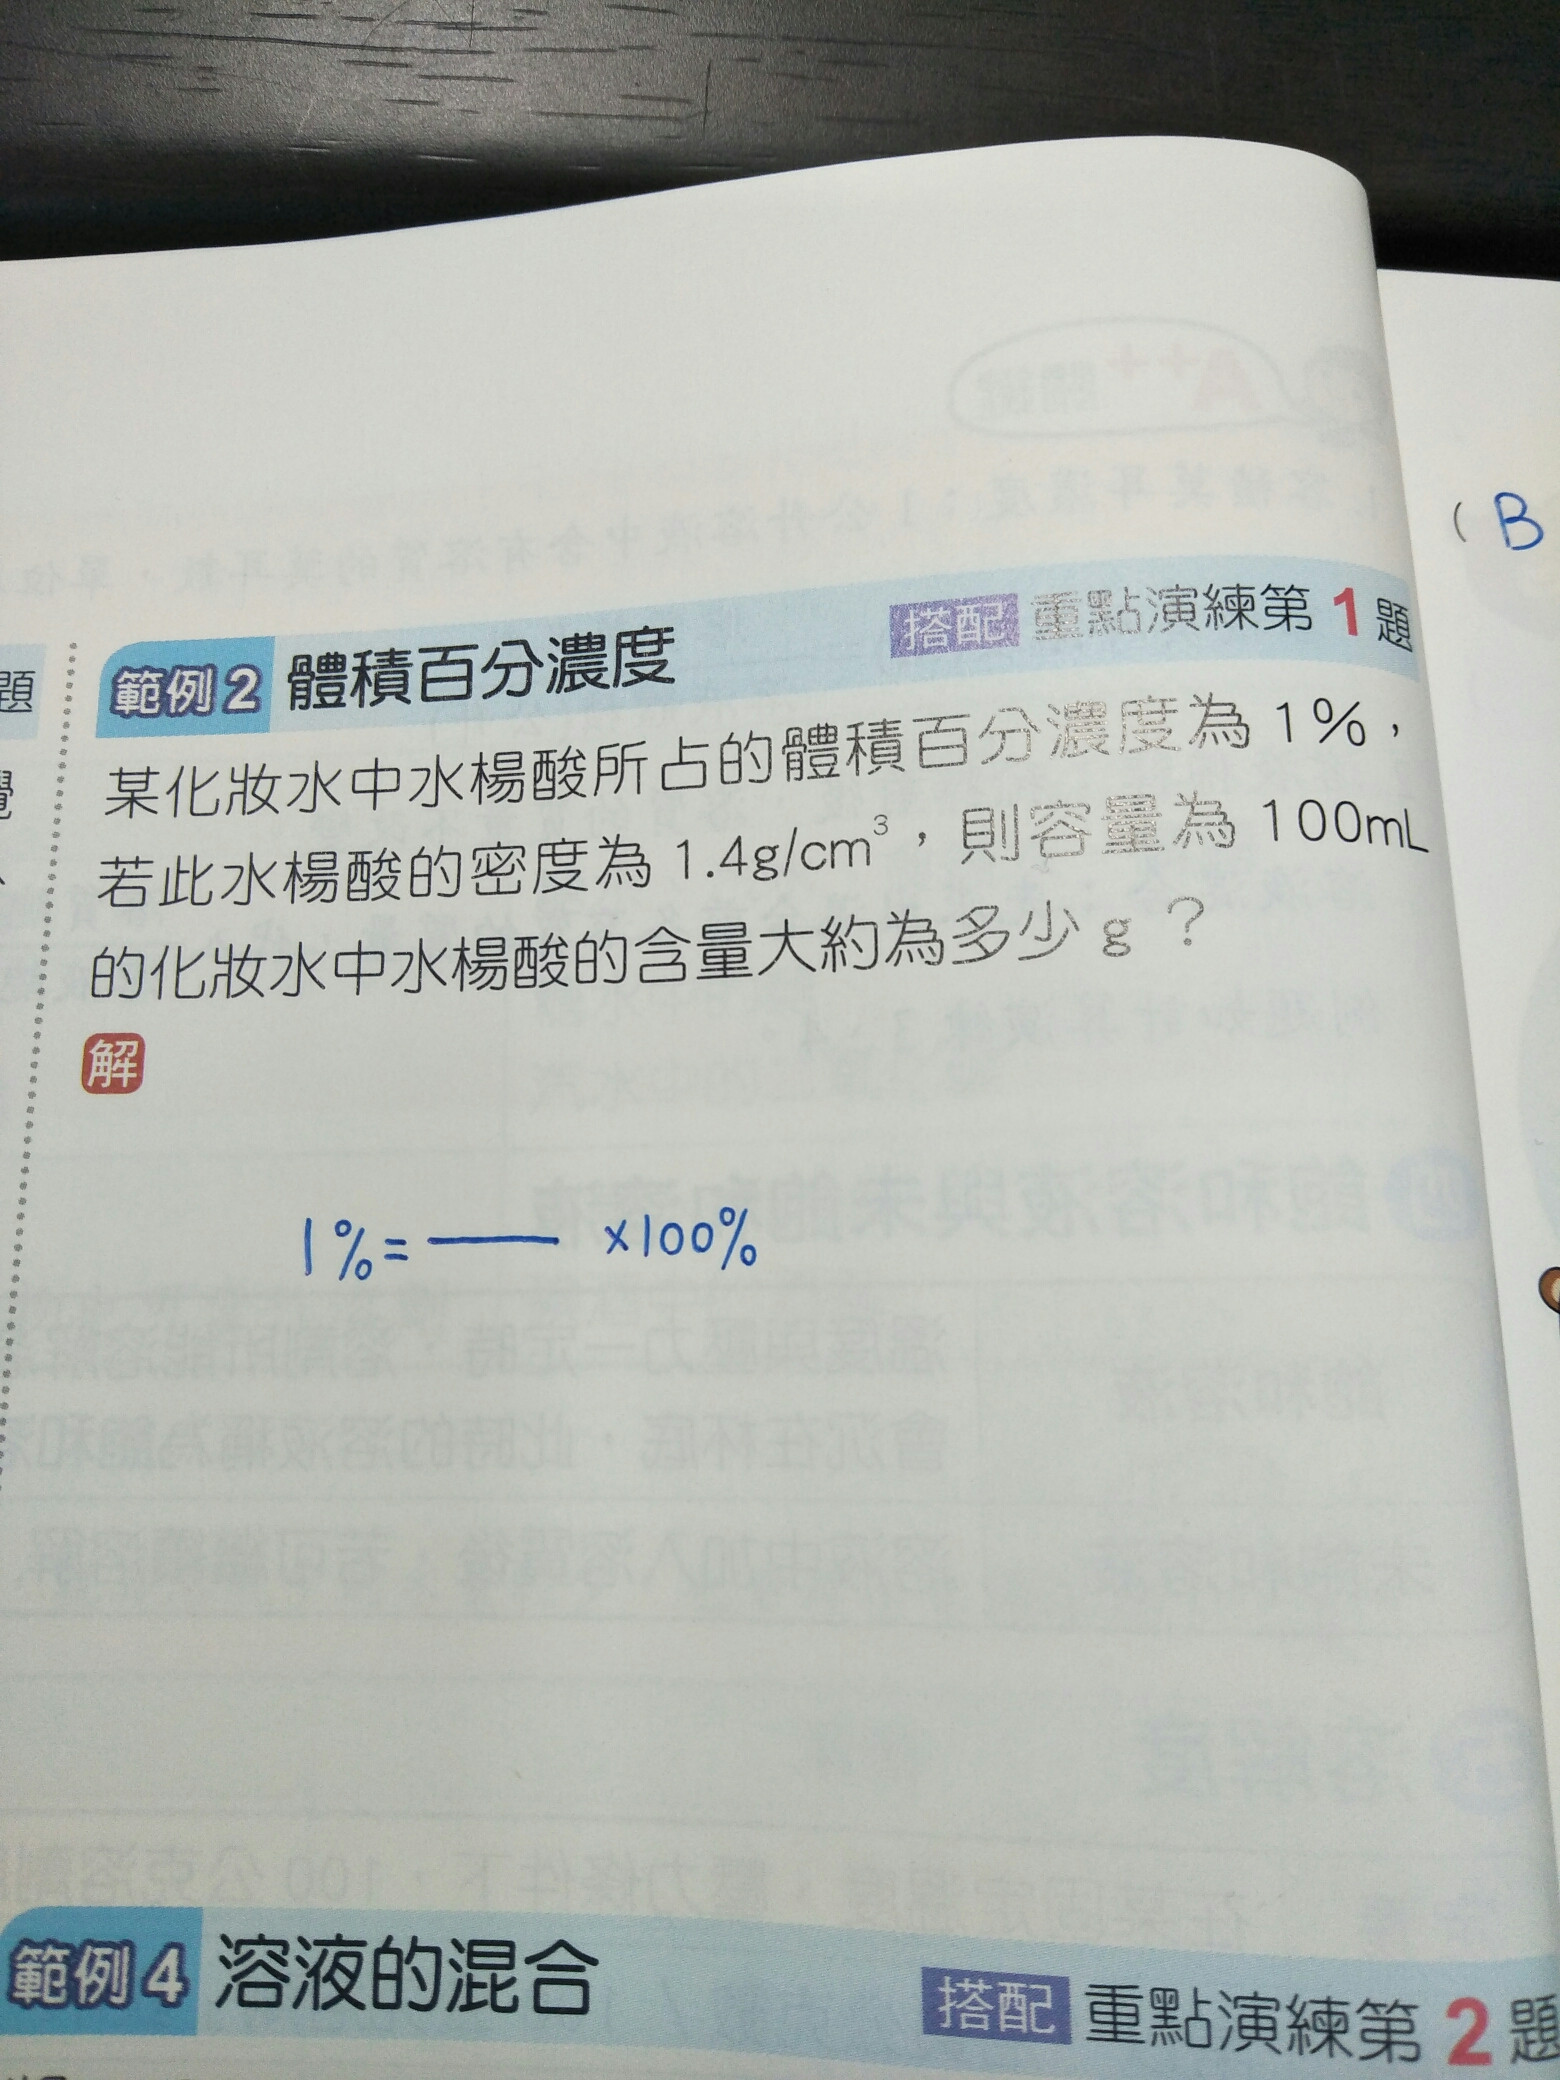 (B
範例2 體積百分濃度 搭配 重點演練第1題
某化妝水中水楊酸所占的體積百分濃度為1%，
若此水楊酸的密度為1.4g/cm³，則容量為100mL
的化妝水中水楊酸的含量大約為多少g？
解
1%=—— ×100%
範例4 溶液的混合 搭配 重點演練第2題
題